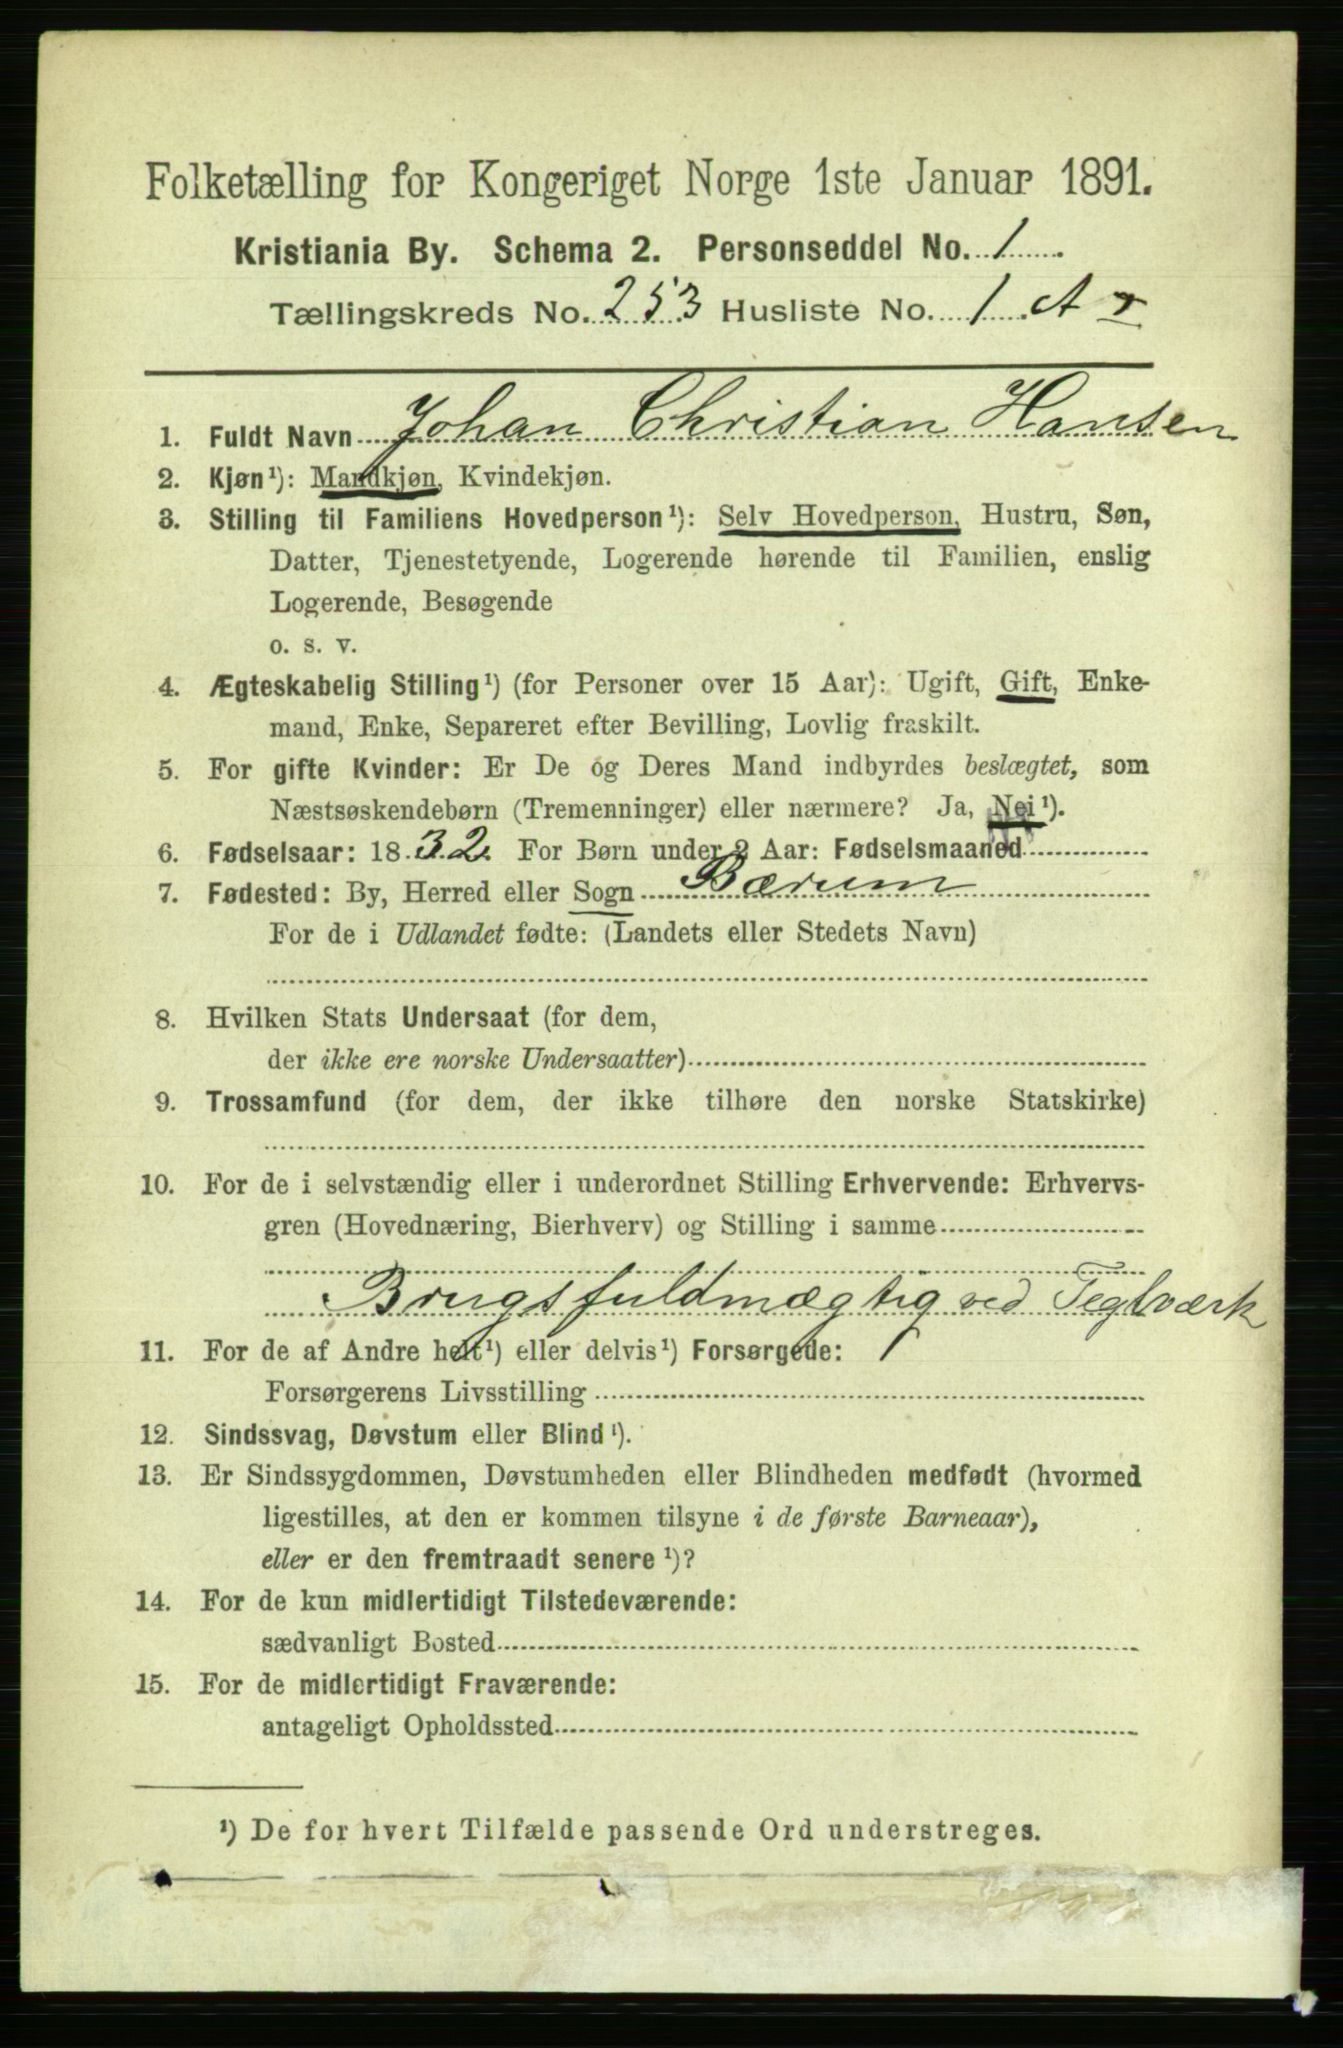 Folketælling for Kongeriget Norge 1ste Januar 1891.
Kristiania By. Schema 2. Personseddel No. 1
Tællingskreds No. 253 Husliste No. 1 A
1. Fuldt Navn Johan Christian Hansen
2. Kjøn¹): Mandkjøn, Kvindekjøn.
3. Stilling til Familiens Hovedperson¹): Selv Hovedperson, Hustru, Søn,
Datter, Tjenestetyende, Logerende hørende til Familien, enslig
Logerende, Besøgende
o. s. v.
4. Ægteskabelig Stilling¹) (for Personer over 15 Aar): Ugift, Gift, Enke-
mand, Enke, Separeret efter Bevilling, Lovlig fraskilt.
5. For gifte Kvinder: Er De og Deres Mand indbyrdes beslægtet, som
Næstsøskendebørn (Tremenninger) eller nærmere? Ja, Nei¹).
6. Fødselsaar: 1832. For Børn under 2 Aar: Fødselsmaaned
7. Fødested: By, Herred eller Sogn Bærum
For de i Udlandet fødte: (Landets eller Stedets Navn)
8. Hvilken Stats Undersaat (for dem,
der ikke ere norske Undersaatter)
9. Trossamfund (for dem, der ikke tilhøre den norske Statskirke)
10. For de i selvstændig eller i underordnet Stilling Erhvervende: Erhvervs-
gren (Hovednæring, Bierhverv) og Stilling i samme
Brugsfuldmægtig ved Teglværk
11. For de af Andre helt¹) eller delvis¹) Forsørgede:
Forsørgerens Livsstilling
12. Sindssvag, Døvstum eller Blind¹).
13. Er Sindssygdommen, Døvstumheden eller Blindheden medfødt (hvormed
ligestilles, at den er kommen tilsyne i de første Barneaar),
eller er den fremtraadt senere¹)?
14. For de kun midlertidigt Tilstedeværende:
sædvanligt Bosted
15. For de midlertidigt Fraværende:
antageligt Opholdssted
¹) De for hvert Tilfælde passende Ord understreges.